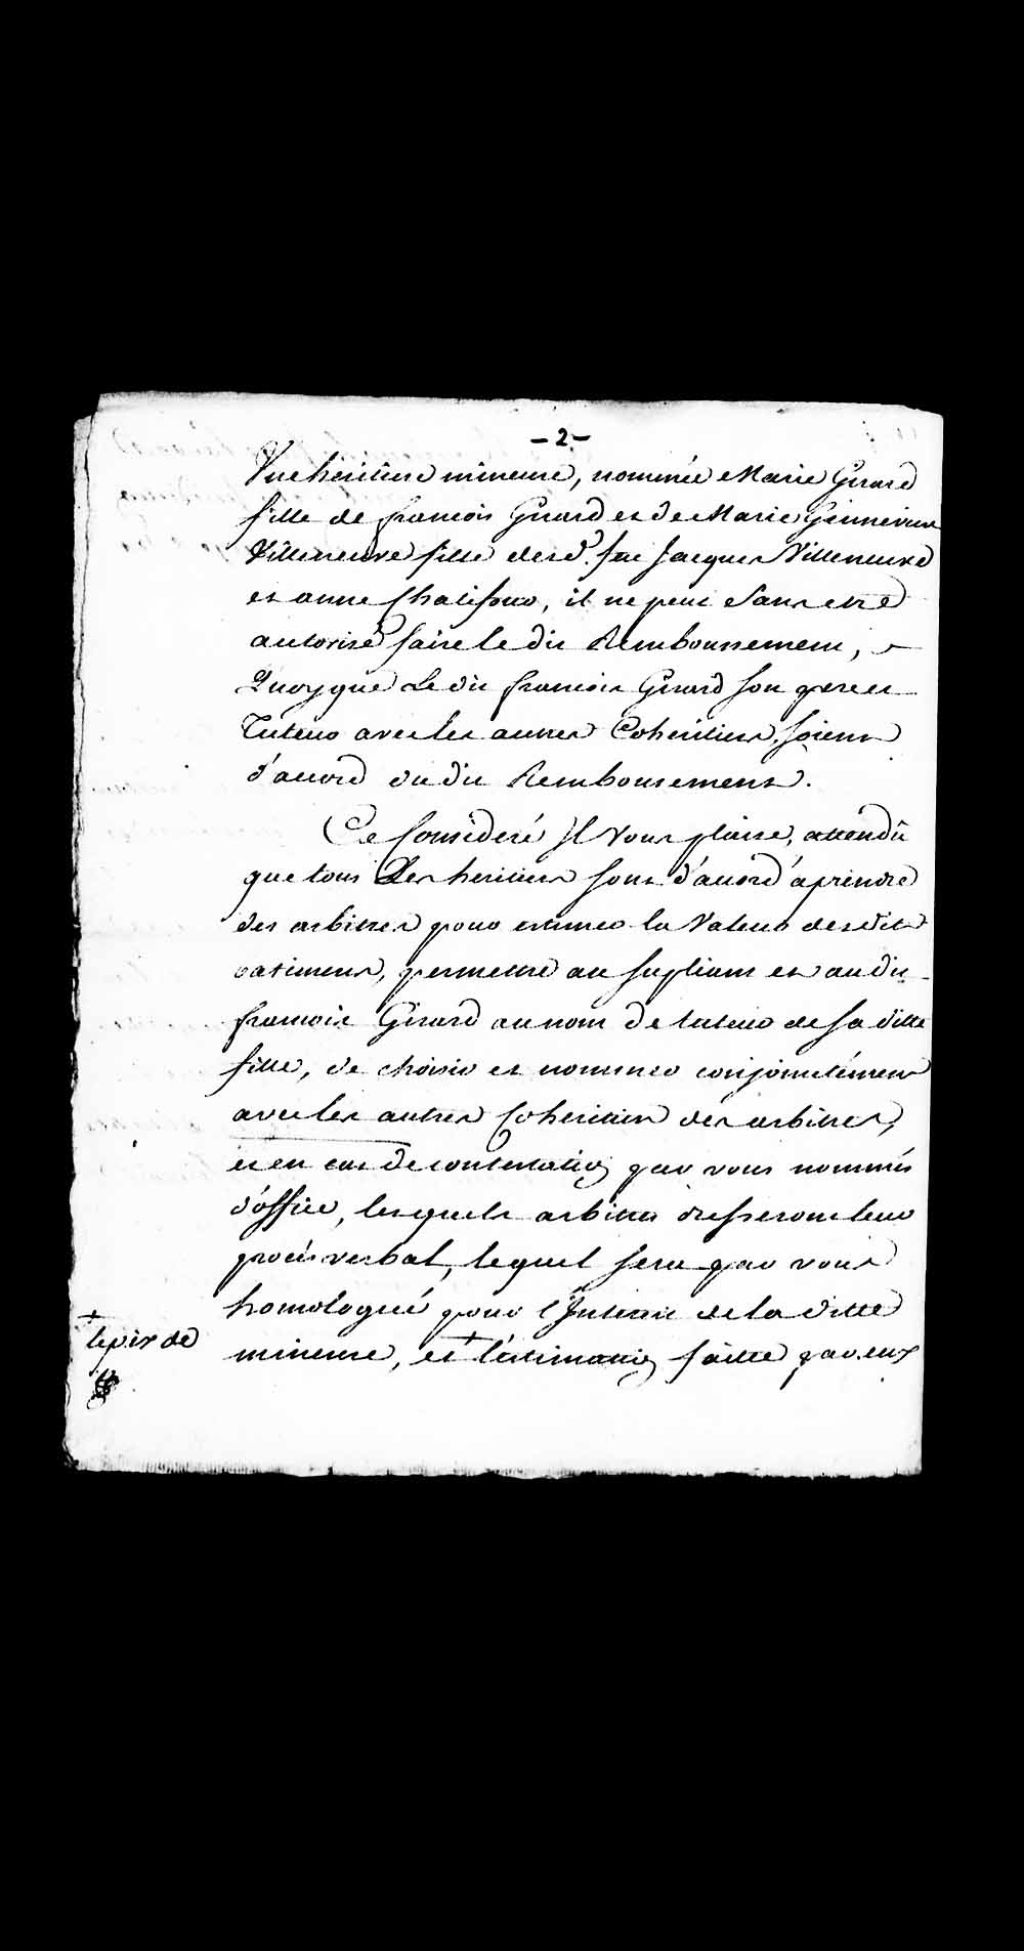 - 2 -
Une heritiere mineure, nommée Marie Girard
fille de francois Girard et de Marie Genevieve
Villeneuve fille desd. feu Jacques Villeneuve
et anne Chalifour, il ne peut Sans etre
autorisé faire le dit Remboursement,
Quoyque Le dit francois Girard son pere et
Tuteur avec les autres Coheritiers, soient
d'accord du dit Remboursement.
Ce Consideré Il Vous plaise, attendû
que tous Les heritiers sont d'accord à prendre
des arbitres pour estimer la Valeur desdits
batiments, permettre au supliant et au dit
francois Girard au nom de tuteur de sa ditte
fille, de choisir et nommer conjointément
avec les autres Coheritiers des arbitres,
et en cas de contestation par vous nommés
d'office, lesquels arbitres dresseront leur
procés verbal, lequel sera par vous
homologué pour l'Interet de la ditte
mineure, et + l'estimation faitte par eux
+
le prix de